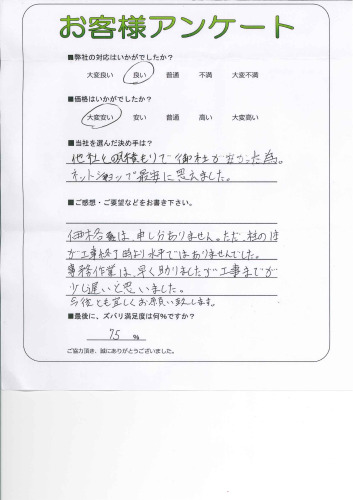 お客様アンケート
■弊社の対応はいかがでしたか？
大変良い 良い 普通 不満 大変不満
■価格はいかがでしたか？
大変安い 安い 普通 高い 大変高い
■当社を選んだ決め手は？
他社との見積もりで御社が安かった為。
ネットショップで最安に思えました。
■ご感想・ご要望などをお書き下さい。
価格は、申し分ありません。ただ、柱のほ
が工事終了時より水平ではありませんでした。
事務作業は、早く助りましたが工事までが
少し遅いと思いました。
今後とも宜しくお願い致します。
■最後に、ズバリ満足度は何％ですか？
75 %
ご協力頂き、誠にありがとうございました。